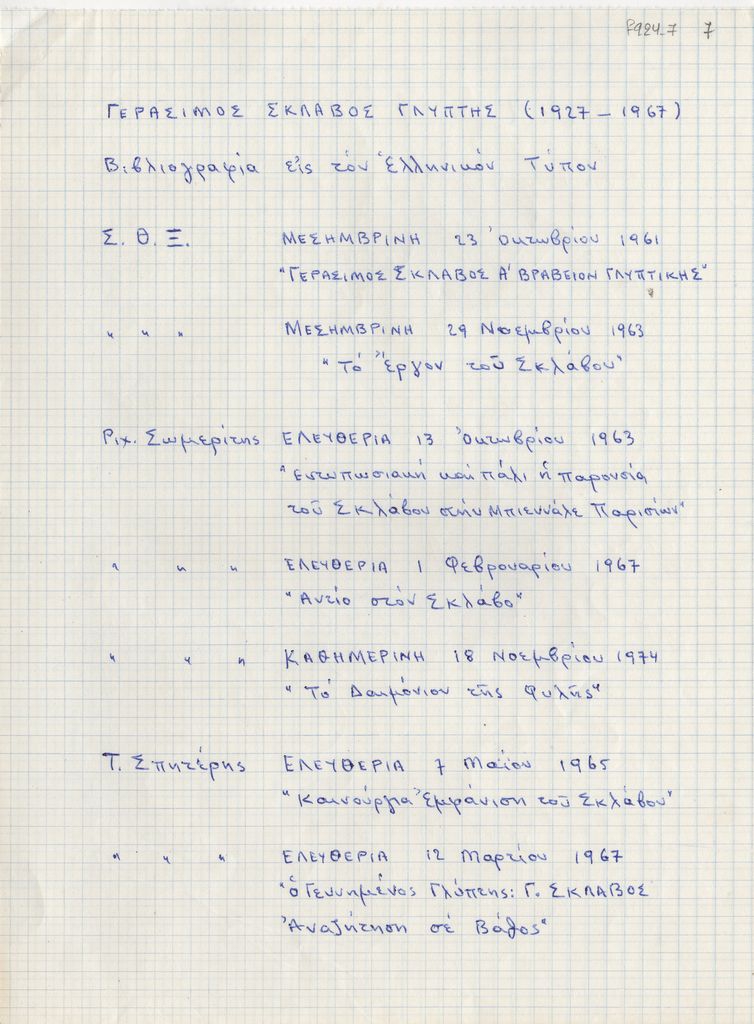 F924_7 7
ΓΕΡΑΣΙΜΟΣ ΣΚΛΑΒΟΣ ΓΛΥΠΤΗΣ (1927 – 1967)
Βιβλιογραφία εἰς τόν Ἑλληνικόν Τύπον
Σ. Θ. Ξ. ΜΕΣΗΜΒΡΙΝΗ 23 Ὀκτωβρίου 1961
"ΓΕΡΑΣΙΜΟΣ ΣΚΛΑΒΟΣ Α' ΒΡΑΒΕΙΟΝ ΓΛΥΠΤΙΚΗΣ"
" " " ΜΕΣΗΜΒΡΙΝΗ 29 Νοεμβρίου 1963
"Τό Ἔργον τοῦ Σκλάβου"
Ριχ. Σωμερίτης ΕΛΕΥΘΕΡΙΑ 13 Ὀκτωβρίου 1963
"Εντυπωσιακή καί πάλι ἡ παρουσία
τοῦ Σκλάβου στήν Μπιεννάλε Παρισίων"
" " " ΕΛΕΥΘΕΡΙΑ 1 Φεβρουαρίου 1967
"Αντίο στόν Σκλάβο"
" " " ΚΑΘΗΜΕΡΙΝΗ 18 Νοεμβρίου 1974
"Τό Δαιμόνιον τῆς Φυλῆς"
Τ. Σπητέρης ΕΛΕΥΘΕΡΙΑ 7 Μαΐου 1965
"Καινούργια Ἐμφάνιση τοῦ Σκλάβου"
" " " ΕΛΕΥΘΕΡΙΑ 12 Μαρτίου 1967
"ὁ Γεννημένος Γλύπτης: Γ. ΣΚΛΑΒΟΣ
Ἀναζήτηση σέ Βάθος"